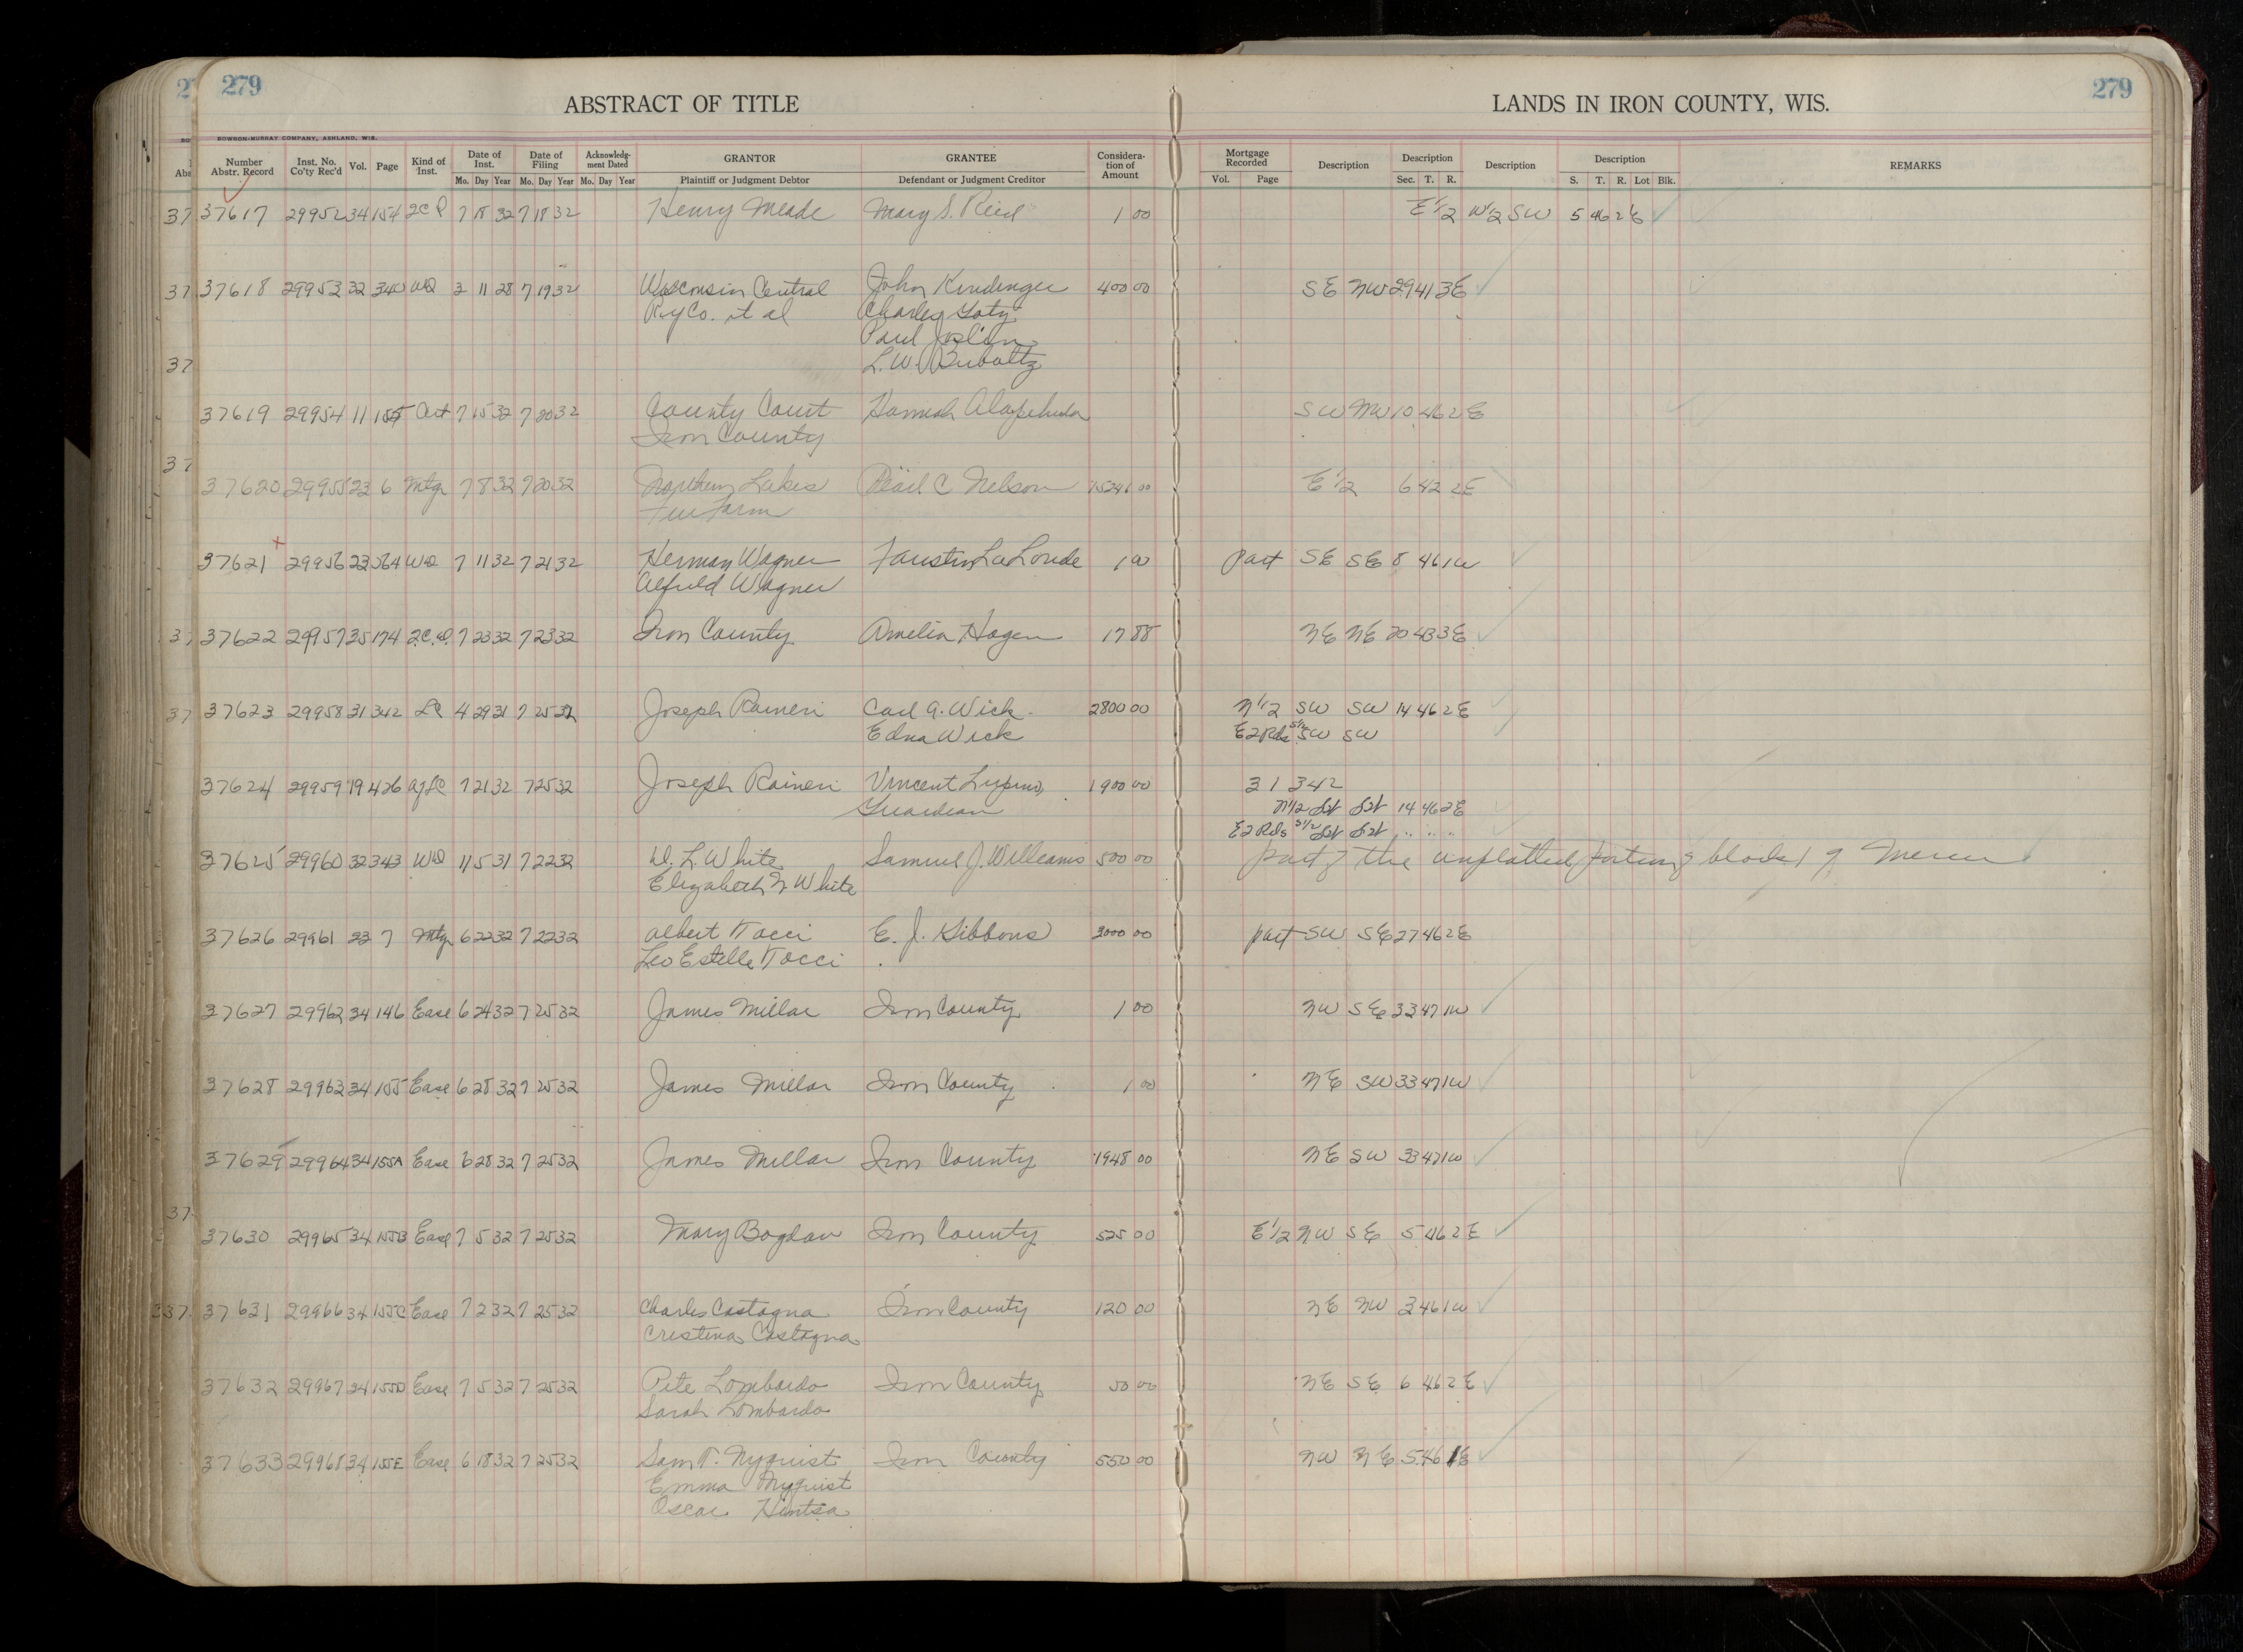 279
279
ABSTRACT OF TITLE
LANDS IN IRON COUNTY, WIS.
BOWRON-MURRAY COMPANY, ASHLAND, WIS.
Number Abstr. Record Inst. No. Co'ty Rec'd Vol. Page Kind of Inst. Date of Inst. Mo. Day Year Date of Filing Mo. Day Year Acknowledg-ment Dated Mo. Day Year GRANTOR Plaintiff or Judgment Debtor GRANTEE Defendant or Judgment Creditor Considera-tion of Amount Mortgage Recorded Vol. Page Description Description Sec. T. R. Description Description S. T. R. Lot Blk. REMARKS
37617 29952 34 154 7 18 32 7 18 32 Henry Meade Mary S. Reid 1 00 E 1/2 W 1/2 SW 5 46 2 E
37618 29953 32 340 WD 2 11 28 7 19 32 Wisconsin Central John Kindinger 400 00 SE NW 29 41 3 E
Ry Co. et al Charley
Paul Joslin
L.W.
37619 29954 11 155 Cert 7 15 32 7 20 32 County Court Hannah SW NW 10 46 2 E
Iron County
37620 29955 23 6 Mtg 7 8 32 7 20 32 Northern Lakes C Nelson 15241 00 E 1/2 6 42 2 E
Fur Farm
37621 29956 23 564 WD 7 11 32 7 21 32 Herman Wagner Faustin LaLonde 1 00 part SE SE 8 46 1 W
Alfred Wagner
37622 29957 35 174 7 23 32 7 23 32 Iron County Amelia Hagen 17 88 NE NE 20 43 3 E
37623 29958 31 342 LC 4 29 31 7 25 32 Joseph Raineri Carl A. Wick 2800 00 N 1/2 SW SW 14 46 2 E
Edna Wick E 2 Rds S 1/2 SW SW
37624 29959 19 426 7 21 32 7 25 32 Joseph Raineri Vincent Lupino, 1900 00 31 342
Guardian N 1/2 SW SW 14 46 2 E
E 2 Rds S 1/2 SW SW " " "
37625 29960 32 343 WD 11 5 31 7 22 32 W. L. White Samuel J. Williams 500 00 part of the unplatted portion of block 1 of Mercer
Elizabeth N White
37626 29961 23 7 Mtg 6 22 32 7 22 32 Albert Tocci E. J. Gibbons 3000 00 part SW SE 27 46 2 E
Leo Estelle Tocci
37627 29962 34 146 Ease 6 24 32 7 25 32 James Millar Iron County 1 00 NW SE 33 47 1 W
37628 29963 34 155 Ease 6 28 32 7 25 32 James Millar Iron County 1 00 NE SW 33 47 1 W
37629 29964 34 155A Ease 6 28 32 7 25 32 James Millar Iron County 1948 00 NE SW 33 47 1 W
37630 29965 34 155B Ease 7 5 32 7 25 32 Mary Bogdan Iron County 525 00 E 1/2 NW SE 5 46 2 E
37631 29966 34 155C Ease 7 2 32 7 25 32 Charles Castagna Iron County 120 00 NE NW 3 46 1 W
Cristina Castagna
37632 29967 34 155D Ease 7 5 32 7 25 32 Pete Lombardo Iron County 50 00 NE SE 6 46 2 E
Sarah Lombardo
37633 29968 34 155E Ease 6 18 32 7 25 32 Sam T. Nyquist Iron County 550 00 NW NE 5 46 1 E
Emma Nyquist
Oscar Hintsa